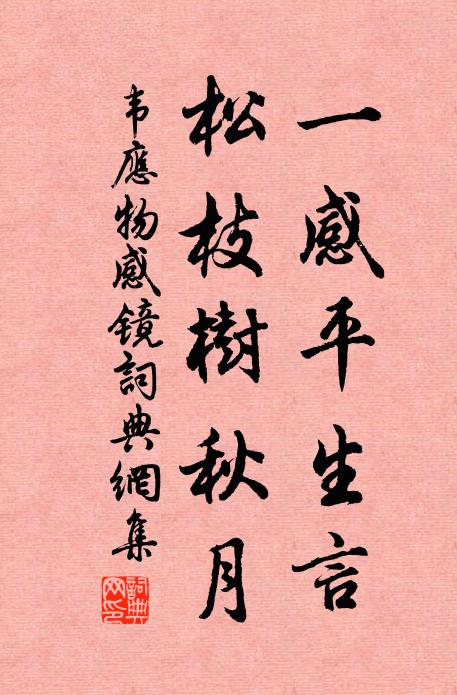 一感平生言
松枝樹秋月
韦應物感鏡詞典網集
詞典
网印